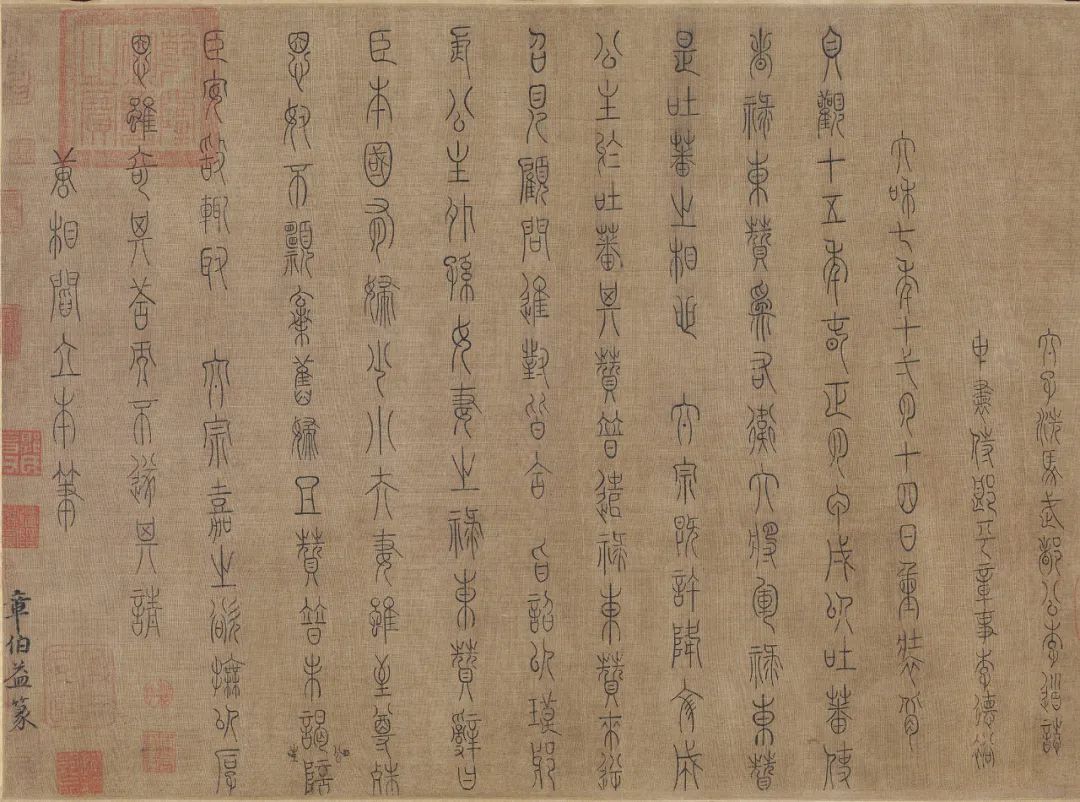 太子洗馬武都公李道誌
中書侍郎平章事李德裕
大和七年十一月十四日重裝背
貞觀十五年春正月甲戌以吐蕃使
者祿東贊為右衛大將軍祿東贊
是吐蕃之相也 太宗既許降文成
公主於吐蕃其贊普遣祿東贊來逆
召見顧問進對皆合 旨詔以琅琊
長公主外孫女妻之祿東贊辭曰
臣本國有婦少小夫妻雖至尊殊
恩奴不願棄舊婦且贊普未謁陪
臣安敢輒取 太宗嘉之欲撫以厚
恩雖奇其答而不遂其請
唐相閻立本筆
章伯益篆